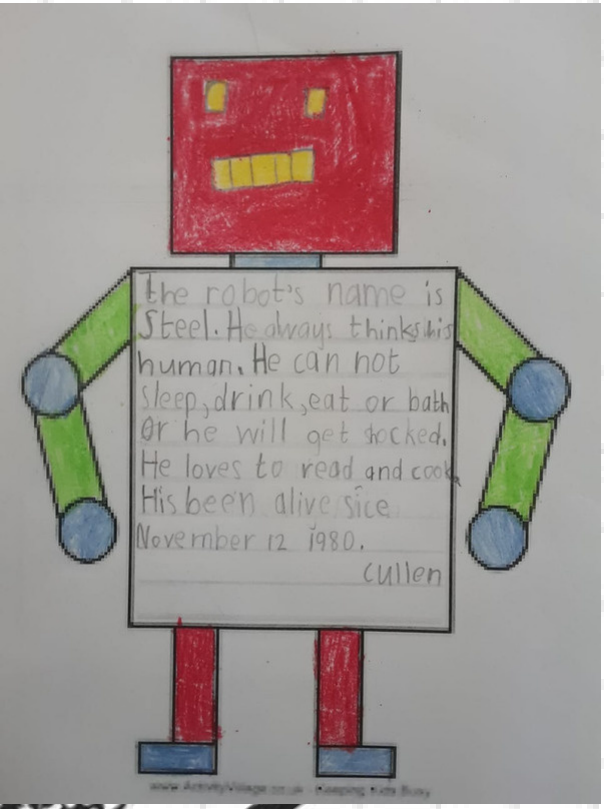 The robot's name is
Steel. He always thinks his
human. He can not
sleep, drink, eat or bath
Or he will get socked.
He loves to read and cook.
His been alive sice
November 12 1980.
Cullen
www.ActivityVillage.co.uk - Keeping Kids Busy